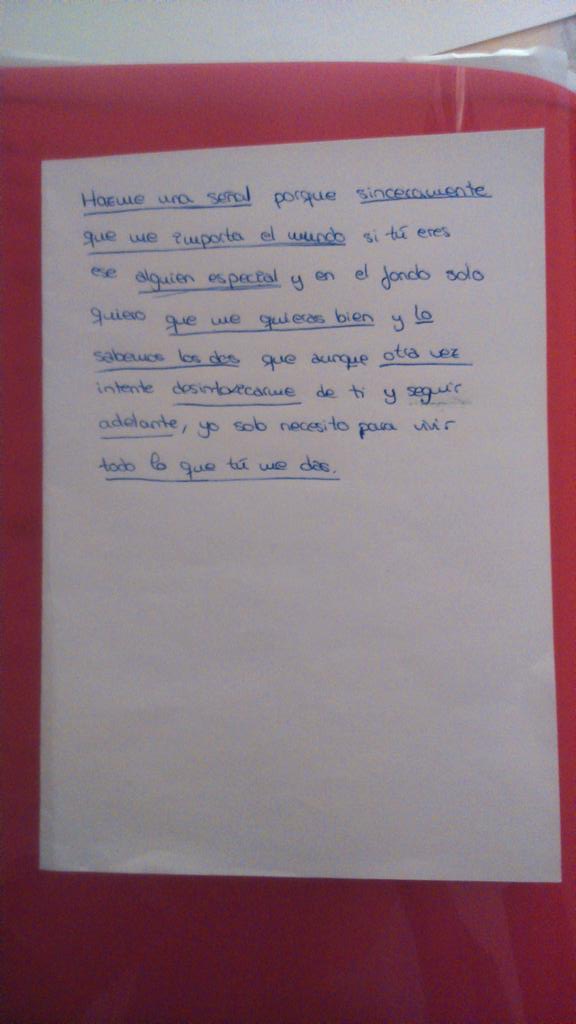 Hazme una señal porque sinceramente
que me importa el mundo si tú eres
ese alguien especial y en el fondo solo
quiero que me quieras bien y lo
sabemos los dos que aunque otra vez
intente desintoxicarme de ti y seguir
adelante, yo solo necesito para vivir
todo lo que tú me das.